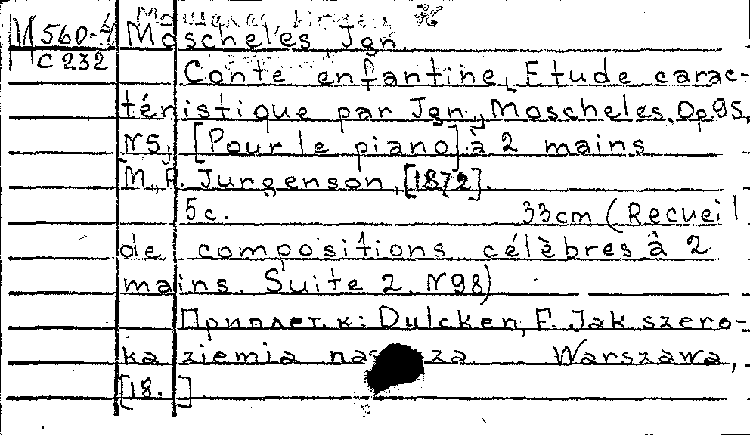 М 560-4 Moscheles, Jgn.
С 232
Conte enfantine, Etude carac-
téristique par Jgn. Moscheles, Op 95,
N 5, [Pour le piano] à 2 mains
M., P. Jurgenson, [1872].
5 c. 33cm (Recueil
de compositions célèbres à 2
mains. Suite 2. N 98)
Приплет. к: Dulcken, F. Jak szero-
ka ziemia Warszawa,
[18. ]